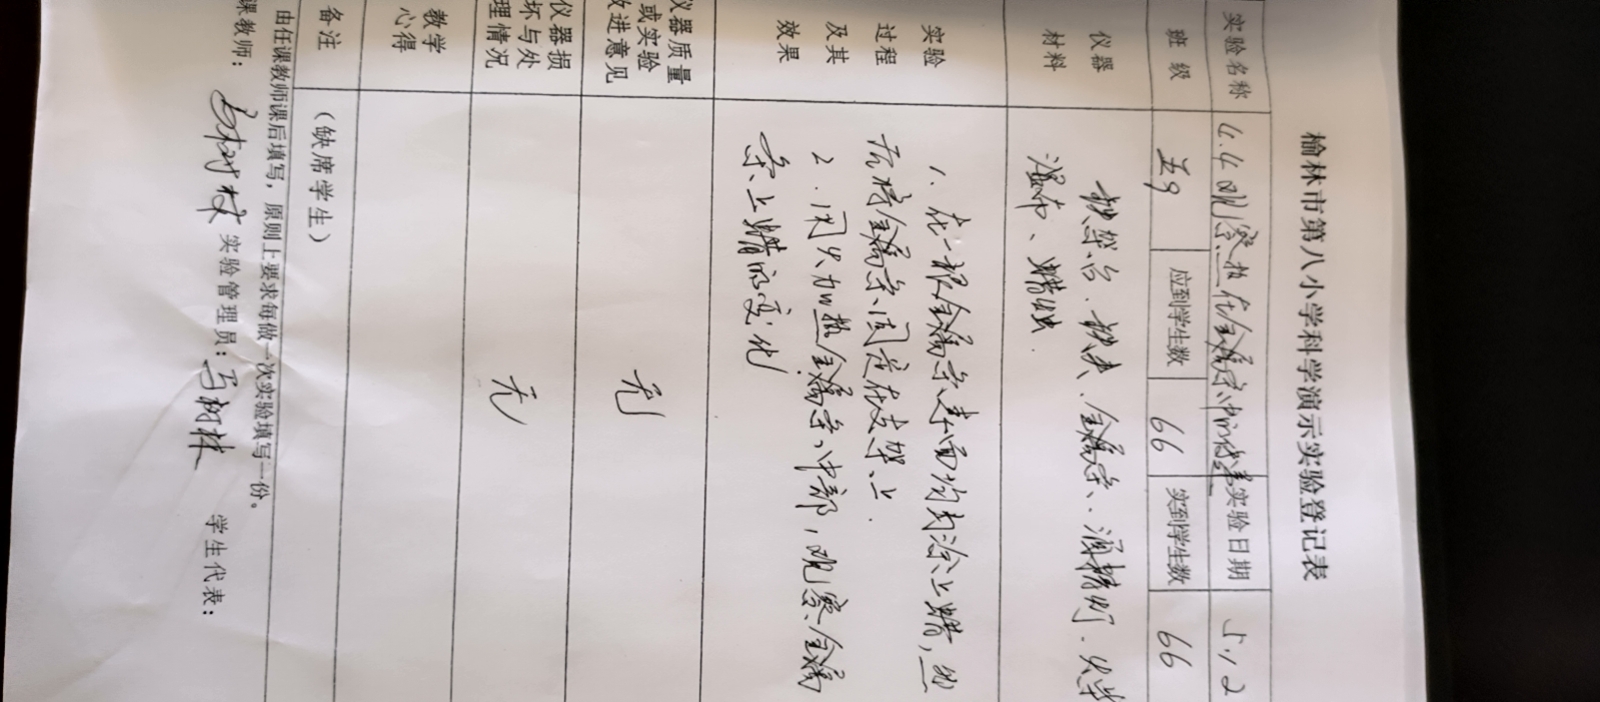 榆林市第八小学科学演示实验登记表
实验名称 4.4观察热在金属条中的传递 实验日期 5.12
班级 五9 应到学生数 66 实到学生数 66
仪器材料 铁架台、铁夹、金属条、酒精灯、火柴
湿布、蜡烛.
实验过程及其效果 1.在一根金属条表面均匀涂上蜡,
后将金属条固定在支架上.
2.用火加热金属条中部,观察金属
条上蜡的变化
仪器质量或实验改进意见 无
仪器损坏与处理情况 无
教学心得
备注 (缺席学生)
由任课教师课后填写,原则上要求每做一次实验填写一份。
课教师: 实验管理员: 马树林 学生代表: